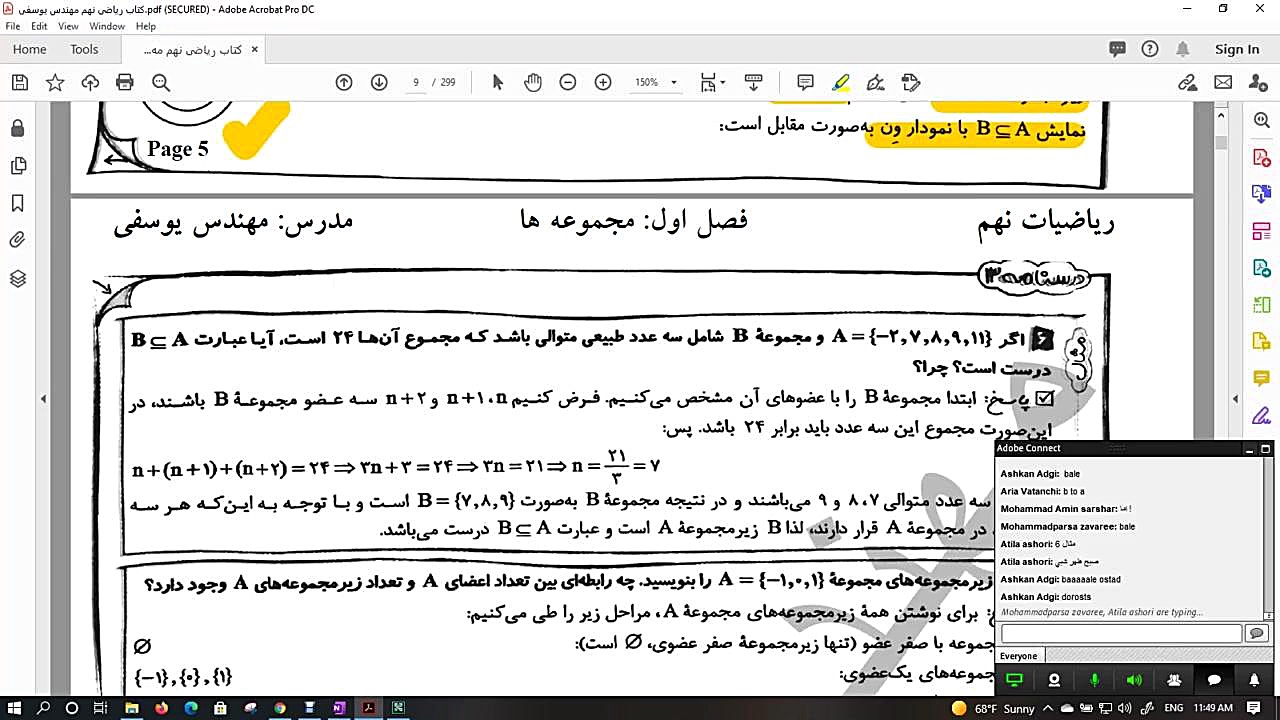 کتاب ریاضی نهم مهندس یوسفی.pdf (SECURED) - Adobe Acrobat Pro DC
File Edit View Window Help
Home Tools کتاب ریاضی نهم مه... × Sign In
9 / 299 150%
نمایش B ⊆ A با نمودار وِن به‌صورت مقابل است:
Page 5
ریاضیات نهم فصل اول: مجموعه ها مدرس: مهندس یوسفی
درسنامه ۳
مثال
۶ اگر A = {−۲,۷,۸,۹,۱۱} و مجموعهٔ B شامل سه عدد طبیعی متوالی باشد که مجموع آن‌ها ۲۴ است، آیا عبارت B ⊆ A
درست است؟ چرا؟
پاسخ: ابتدا مجموعهٔ B را با عضوهای آن مشخص می‌کنیم. فرض کنیم n، n+۱ و n+۲ سه عضو مجموعهٔ B باشند، در
این‌صورت مجموع این سه عدد باید برابر ۲۴ باشد. پس:
n+(n+۱)+(n+۲) = ۲۴ ⇒ ۳n+۳ = ۲۴ ⇒ ۳n = ۲۱ ⇒ n = ۲۱/۳ = ۷
سه عدد متوالی ۷، ۸ و ۹ می‌باشند و در نتیجه مجموعهٔ B به‌صورت B = {۷,۸,۹} است و با توجه به این‌که هر سه
در مجموعهٔ A قرار دارند، لذا B زیرمجموعهٔ A است و عبارت B ⊆ A درست می‌باشد.
زیرمجموعه‌های مجموعهٔ A = {−۱,۰,۱} را بنویسید. چه رابطه‌ای بین تعداد اعضای A و تعداد زیرمجموعه‌های A وجود دارد؟
برای نوشتن همهٔ زیرمجموعه‌های مجموعهٔ A، مراحل زیر را طی می‌کنیم:
مجموعه با صفر عضو (تنها زیرمجموعهٔ صفر عضوی، ∅ است): ∅
مجموعه‌های یک‌عضوی: {−۱},{۰},{۱}
Adobe Connect
Ashkan Adgi: bale
Aria Vatanchi: b to a
Mohammad Amin sarshar:
Mohammadparsa zavaree: bale
Atila ashori: مثال 6
Atila ashori: صبح
Ashkan Adgi: baaaaale ostad
Ashkan Adgi: dorosts
Mohammadparsa zavaree, Atila ashori are typing...
Everyone
68°F Sunny ENG 11:49 AM